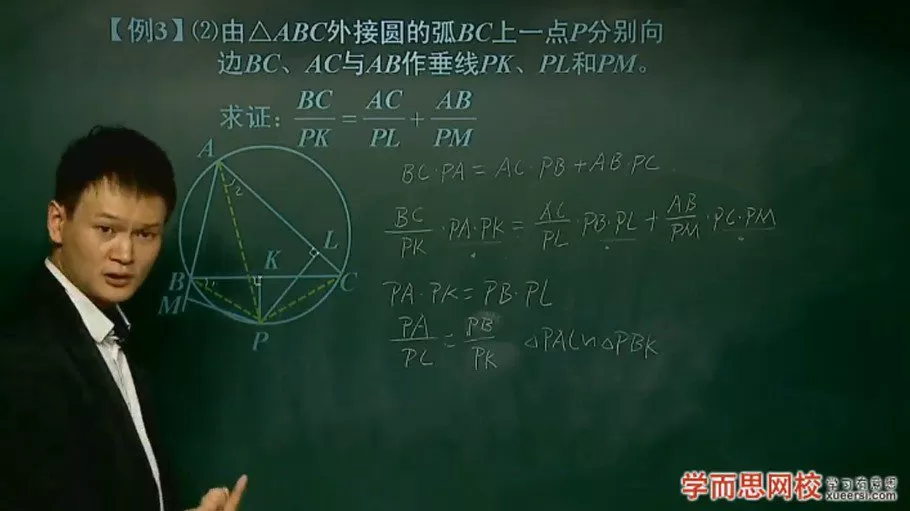 【例3】(2)由△ABC外接圆的弧BC上一点P分别向
边BC、AC与AB作垂线PK、PL和PM。
求证: BC/PK = AC/PL + AB/PM
BC·PA = AC·PB + AB·PC
BC/PK · PA·PK = AC/PL · PB·PL + AB/PM · PC·PM
PA·PK = PB·PL
PA/PL = PB/PK △PAL∽△PBK
A
2
L
K
B
1
C
M
P
学而思网校
学习有意思
xueersi.com